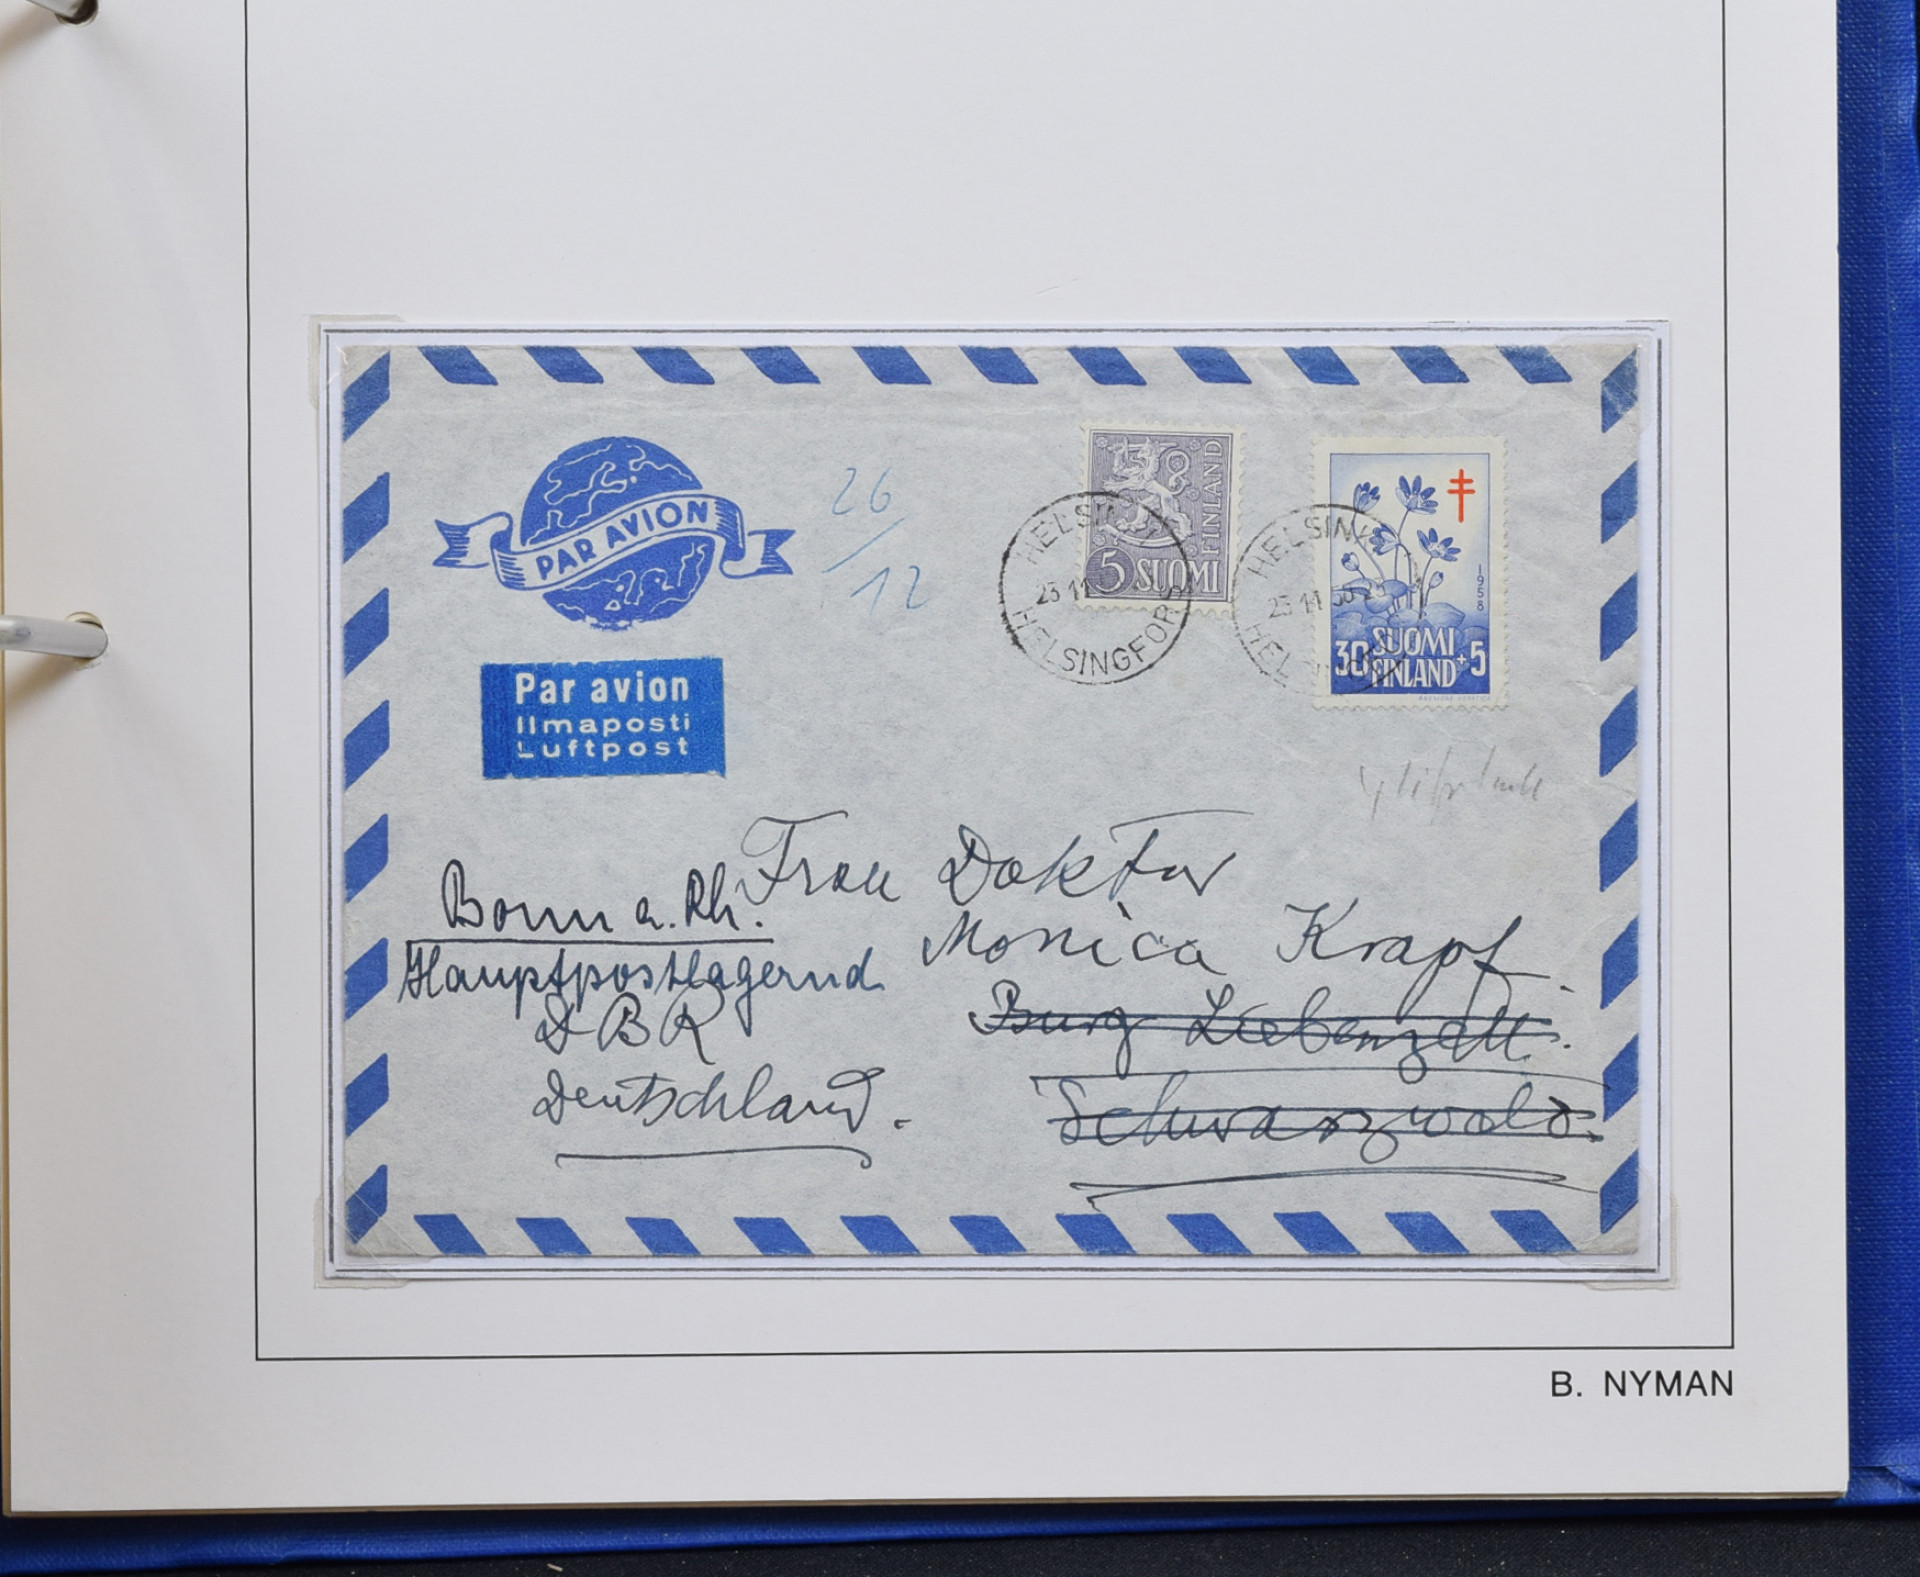 PAR AVION
26
12
5 SUOMI
FINLAND
HELSINKI
23 11
HELSINGFORS
HELSINKI
23 11 58
1958
30 SUOMI +5
FINLAND
Par avion
Ilmaposti
Luftpost
Frau Doktor
Monica Krapf.
Burg Liebenzell.
Schwarzwald.
Bonn a. Rh.
Hauptpostlagernd
DBR
Deutschland.
B. NYMAN